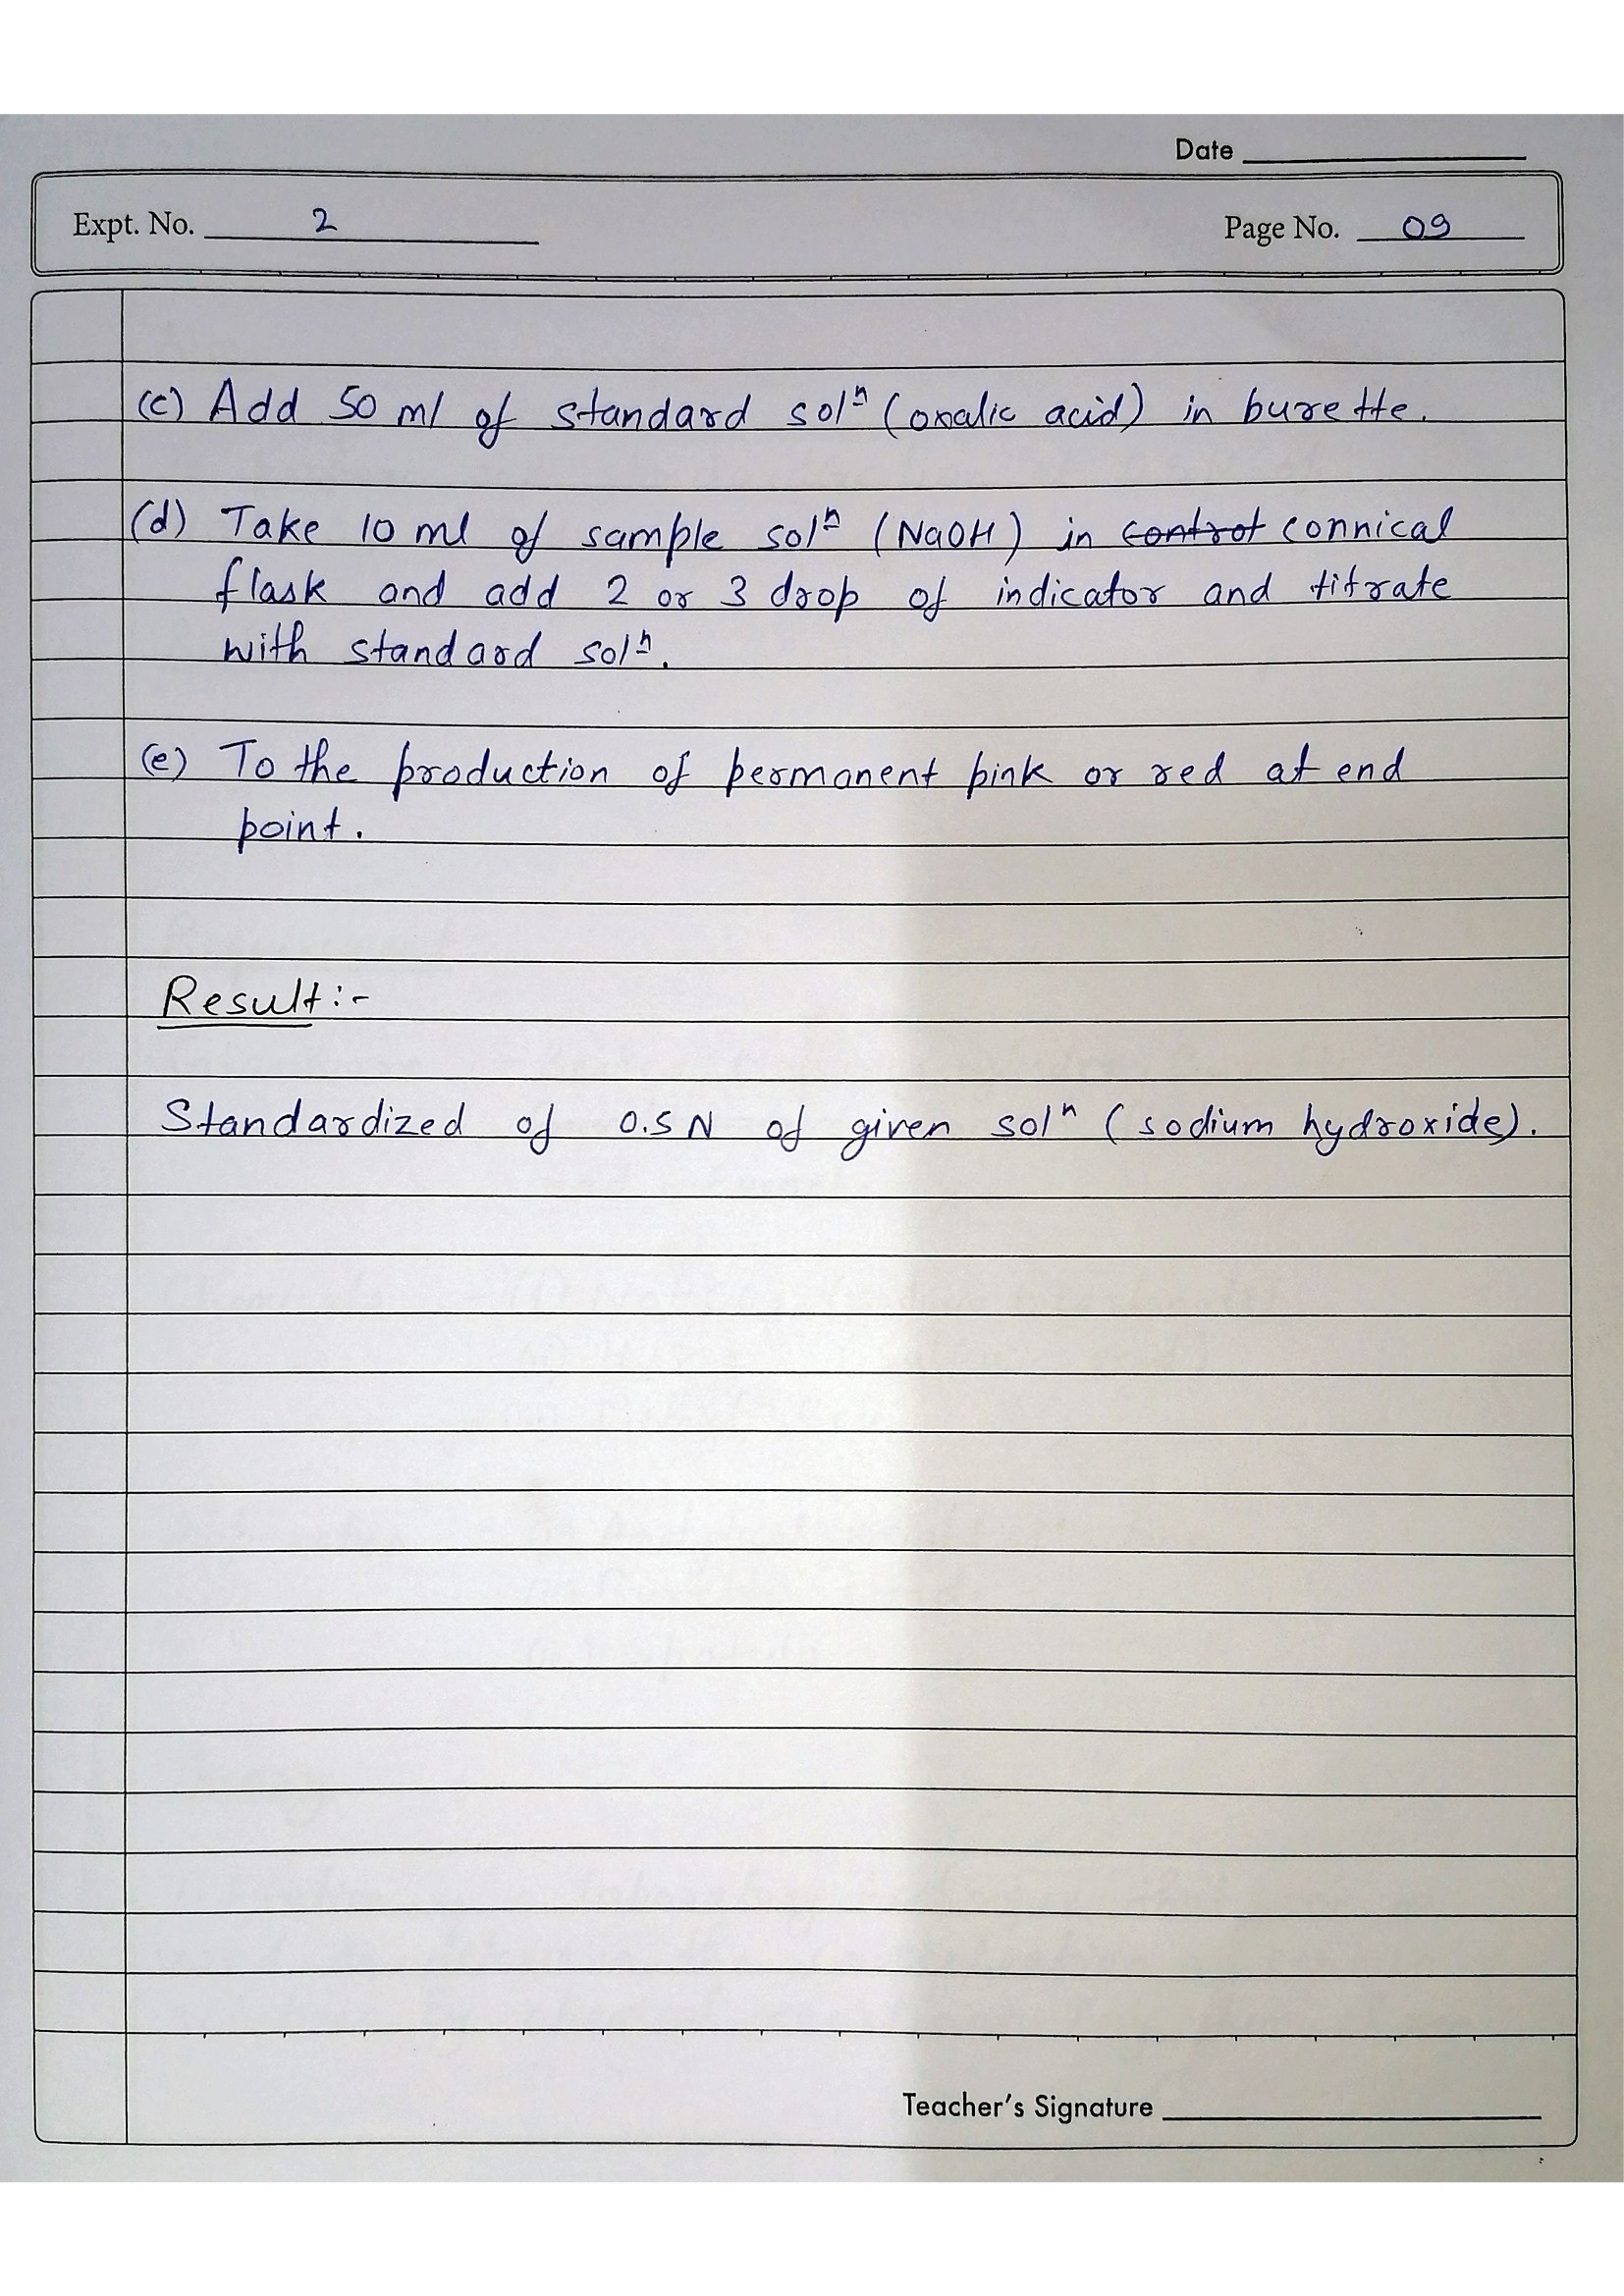 Date
Expt. No. 2 Page No. 09
(c) Add 50 ml of standard solⁿ (oxalic acid) in burette.
(d) Take 10 ml of sample solⁿ (NaOH) in control connical
flask and add 2 or 3 drop of indicator and titrate
with standard solⁿ.
(e) To the production of permanent pink or red at end
point.
Result:-
Standardized of 0.5 N of given solⁿ (sodium hydroxide).
Teacher's Signature